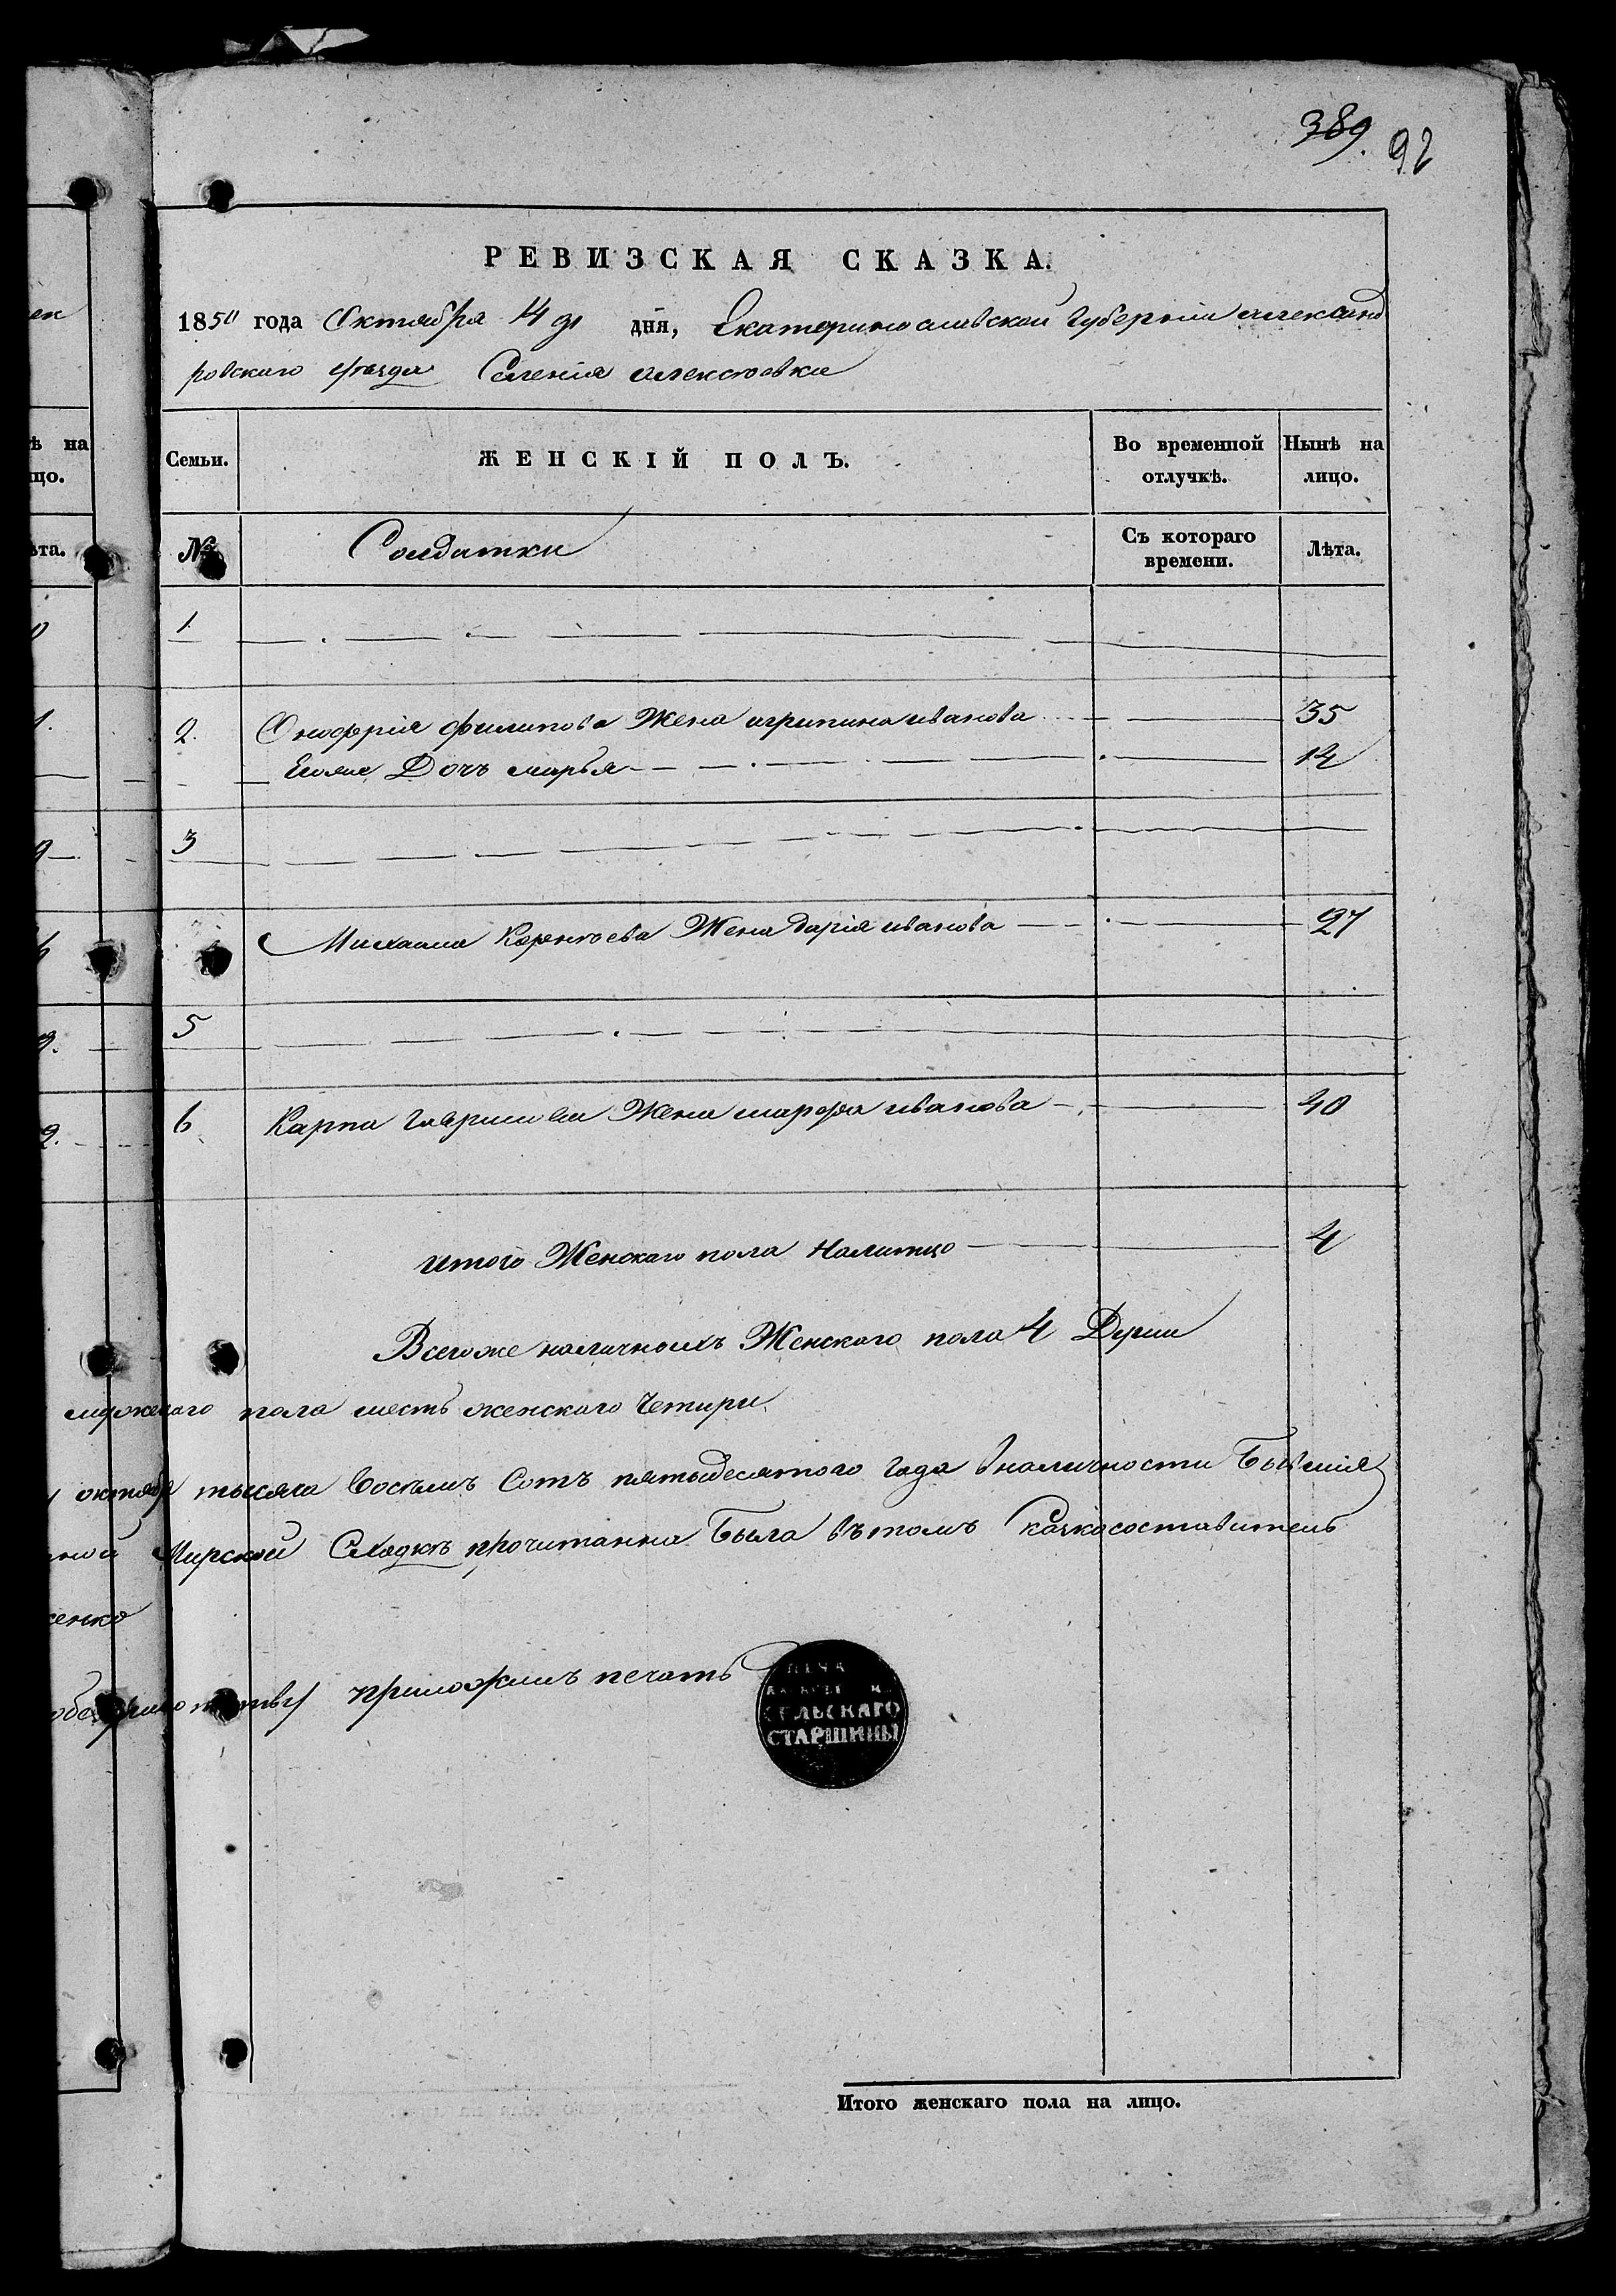 389. 92
РЕВИЗСКАЯ СКАЗКА.
1850 года Октября 4 дня, Екатеринославской Губерніи александ
ровскаго уѣзда Селенія алексеевки
ѣ на
цо.
Семьи.
ЖЕНСКІЙ ПОЛЪ.
Во временной
отлучкѣ.
Нынѣ на
лицо.
ѣта.
№
Солдатки
Съ котораго
времени.
Лѣта.
1
2. Онофрія филипова Жена агрипина иванова 35
Егоже Дочь марья 14
3
Михаила Жена дарія иванова 27
5
6 Карпа Гаврилова Жена марфа иванова 40
итого Женскаго пола Налицо 4
Всегоже наличныхъ Женскаго пола 4 Души
мужескаго пола шесть женскаго Четыри
октября тысяча Восемь Сотъ пятьдесятого года вналичности Бывшія
Мирской Сходкѣ прочитанна Была въ томъ
енко
приложилъ печать
СЕЛЬСКАГО
СТАРШИНЫ
Итого женскаго пола на лицо.